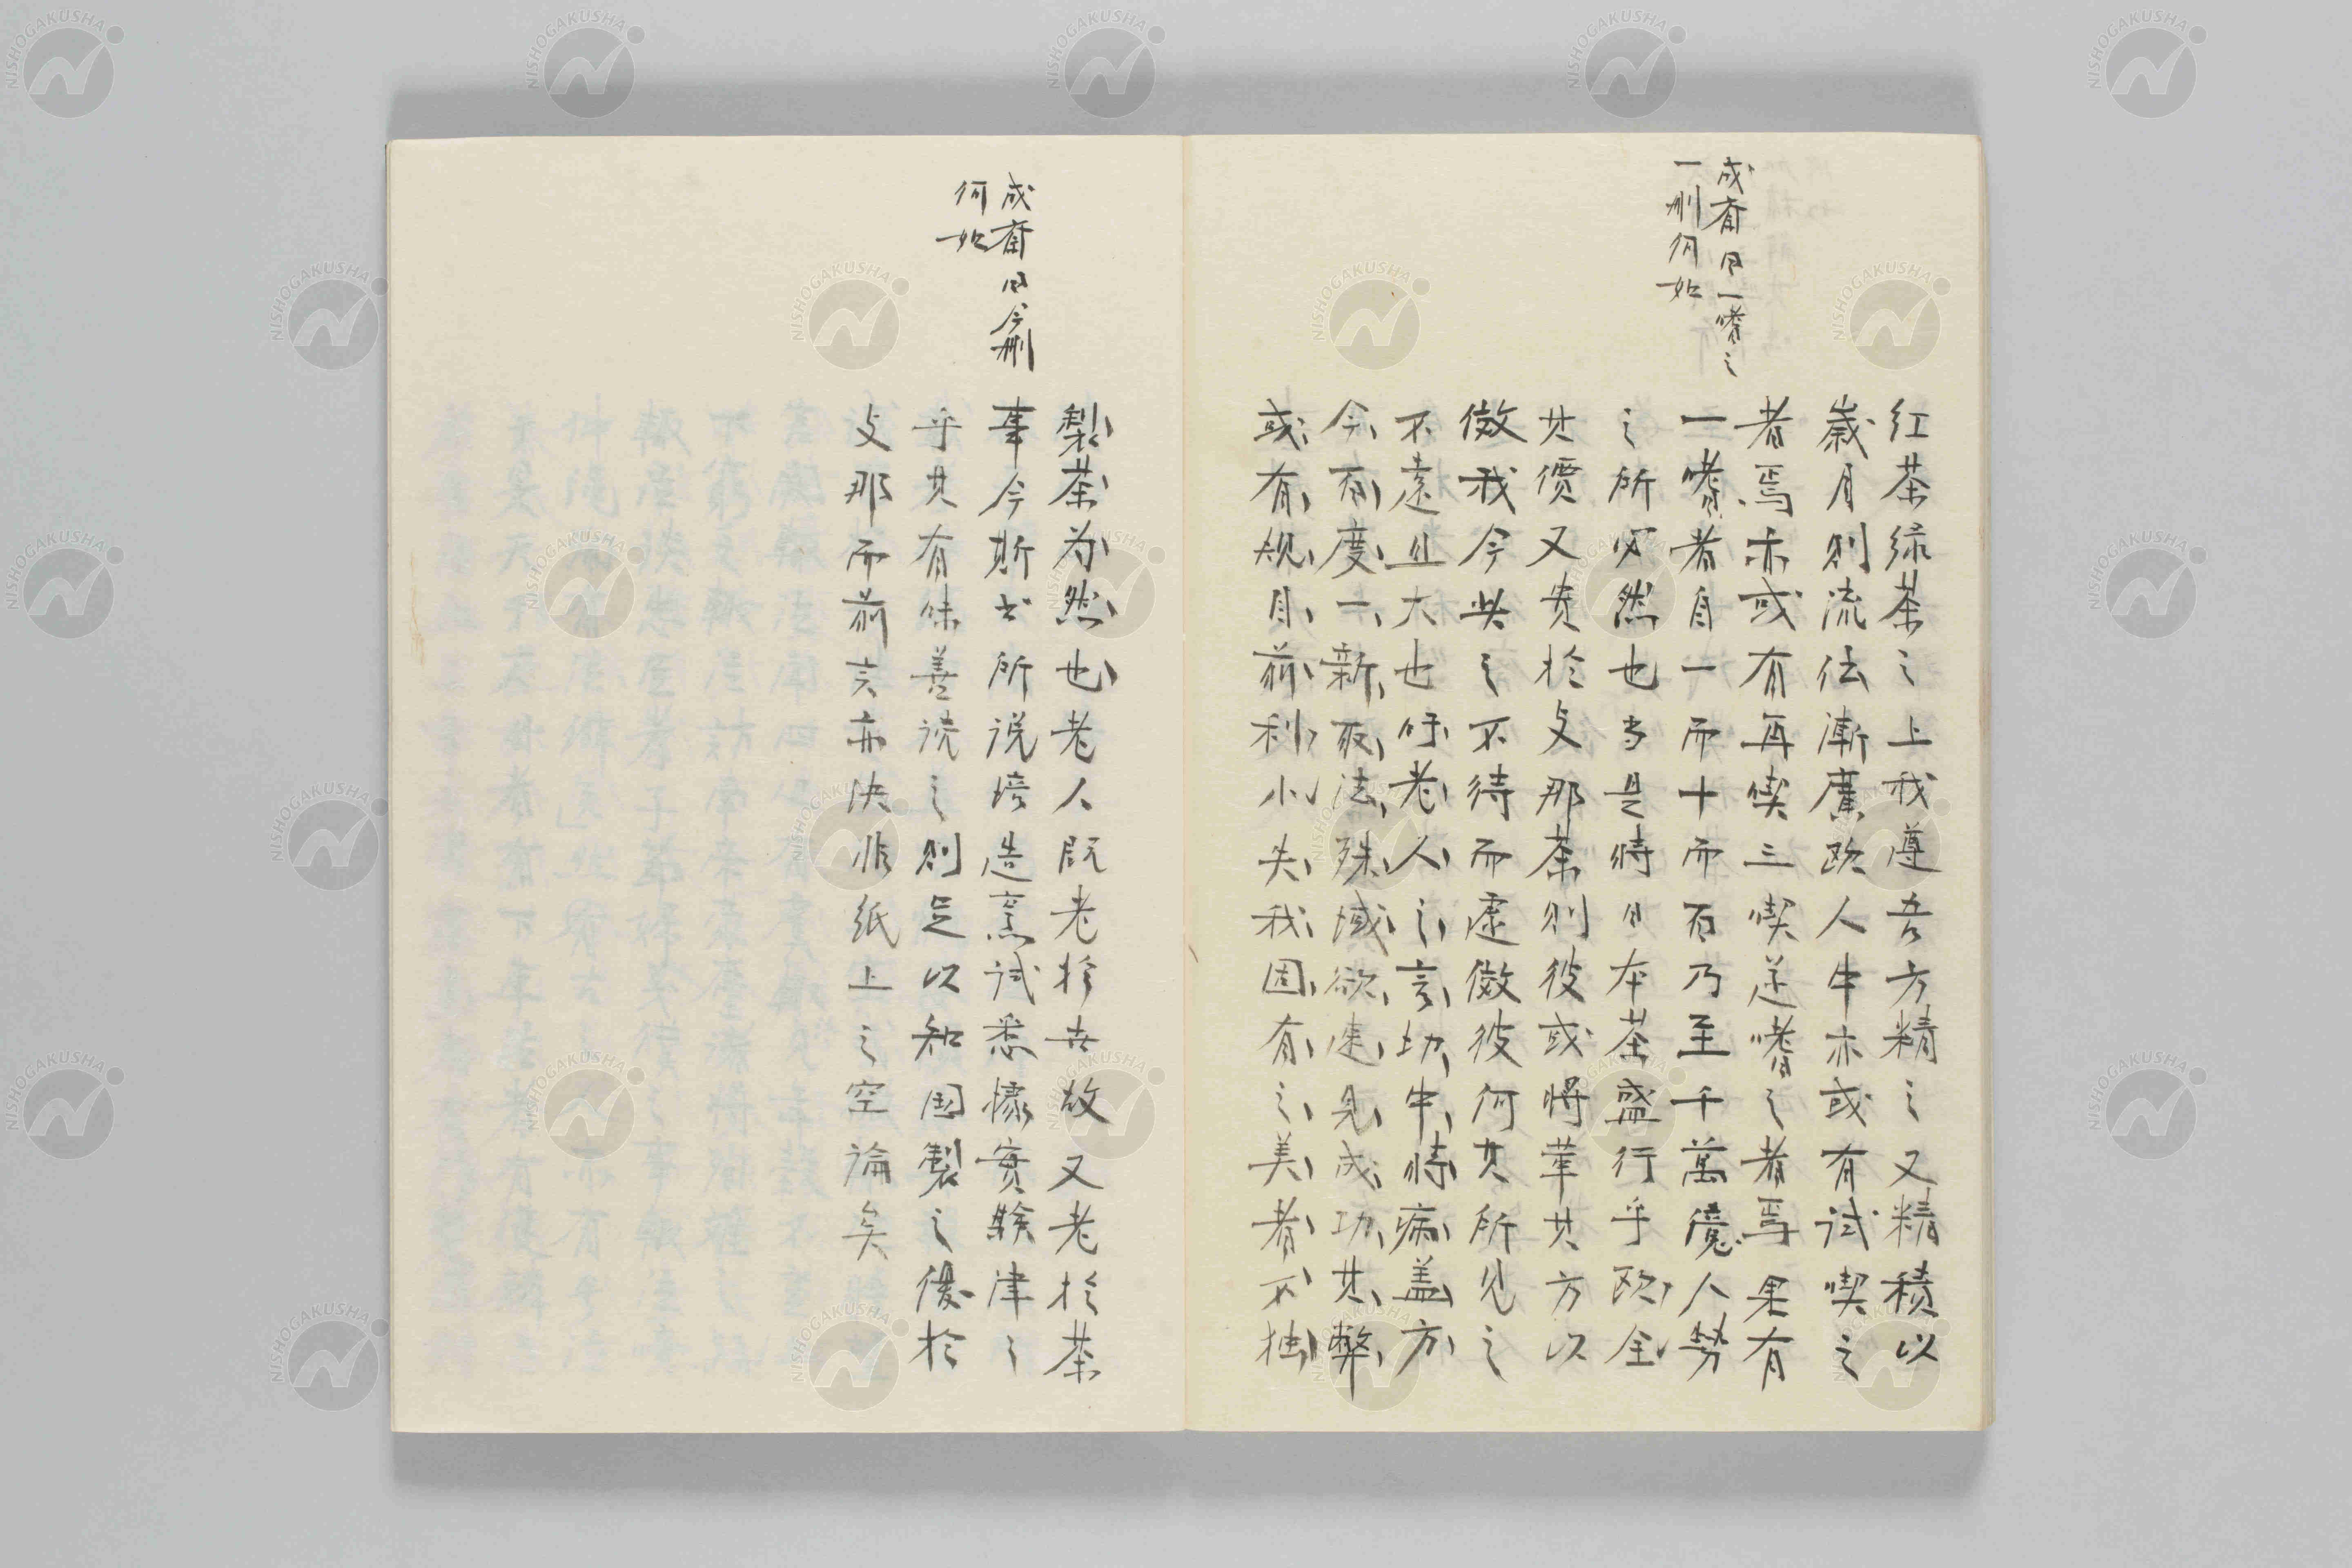 成斎曰一嗜之
一刪何如
紅茶緑茶之上我遵吾方精之又精積以
歳月則流伝漸廣欧人中亦或有試喫之
者焉亦或有再喫三喫遂嗜之者焉果有
一嗜者自一而十而百乃至千萬億人勢
之所必然也当是時日本茶盛行乎欧全
其價又貴於支那茶則彼或将革其方以
倣我今此之不待而虚倣彼何其所見之
不遠且大也吁老人之言切中時病蓋方
今百度一新取法殊域欲速見成功其弊
或有規目前利小失我固有之美者不独
成斎曰今刪
何如
製茶為然也老人既老於世故又老於茶
事今斯書所説培造烹試悉據實験津々
乎其有味善読之則足以知国製之優於
支那而前言亦決非紙上之空論矣
NISHOGAKUSHA